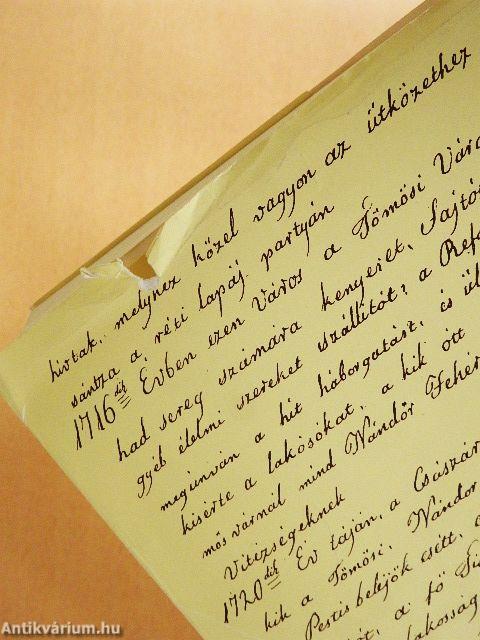 hivtak, melyhez közel vagyon az ütközethez
sántza a réti lapáj partyán
1716dik Évben ezen Város a Tömösi Váro
had sereg számára kenyeret, Sajtó
gyéb élelmi szereket szállítót; a Refo
megúnván a hit háborgatást, és ül
kisérte a lakósókat, a kik ott
mös várnál mind Nándór Fehér
Vitizségeknek
1720dik Év táján, a Császár
kik a Tömösi, Nándor
Pestis beléjök esétt, a
a fő
lakosság
Antikvárium.hu